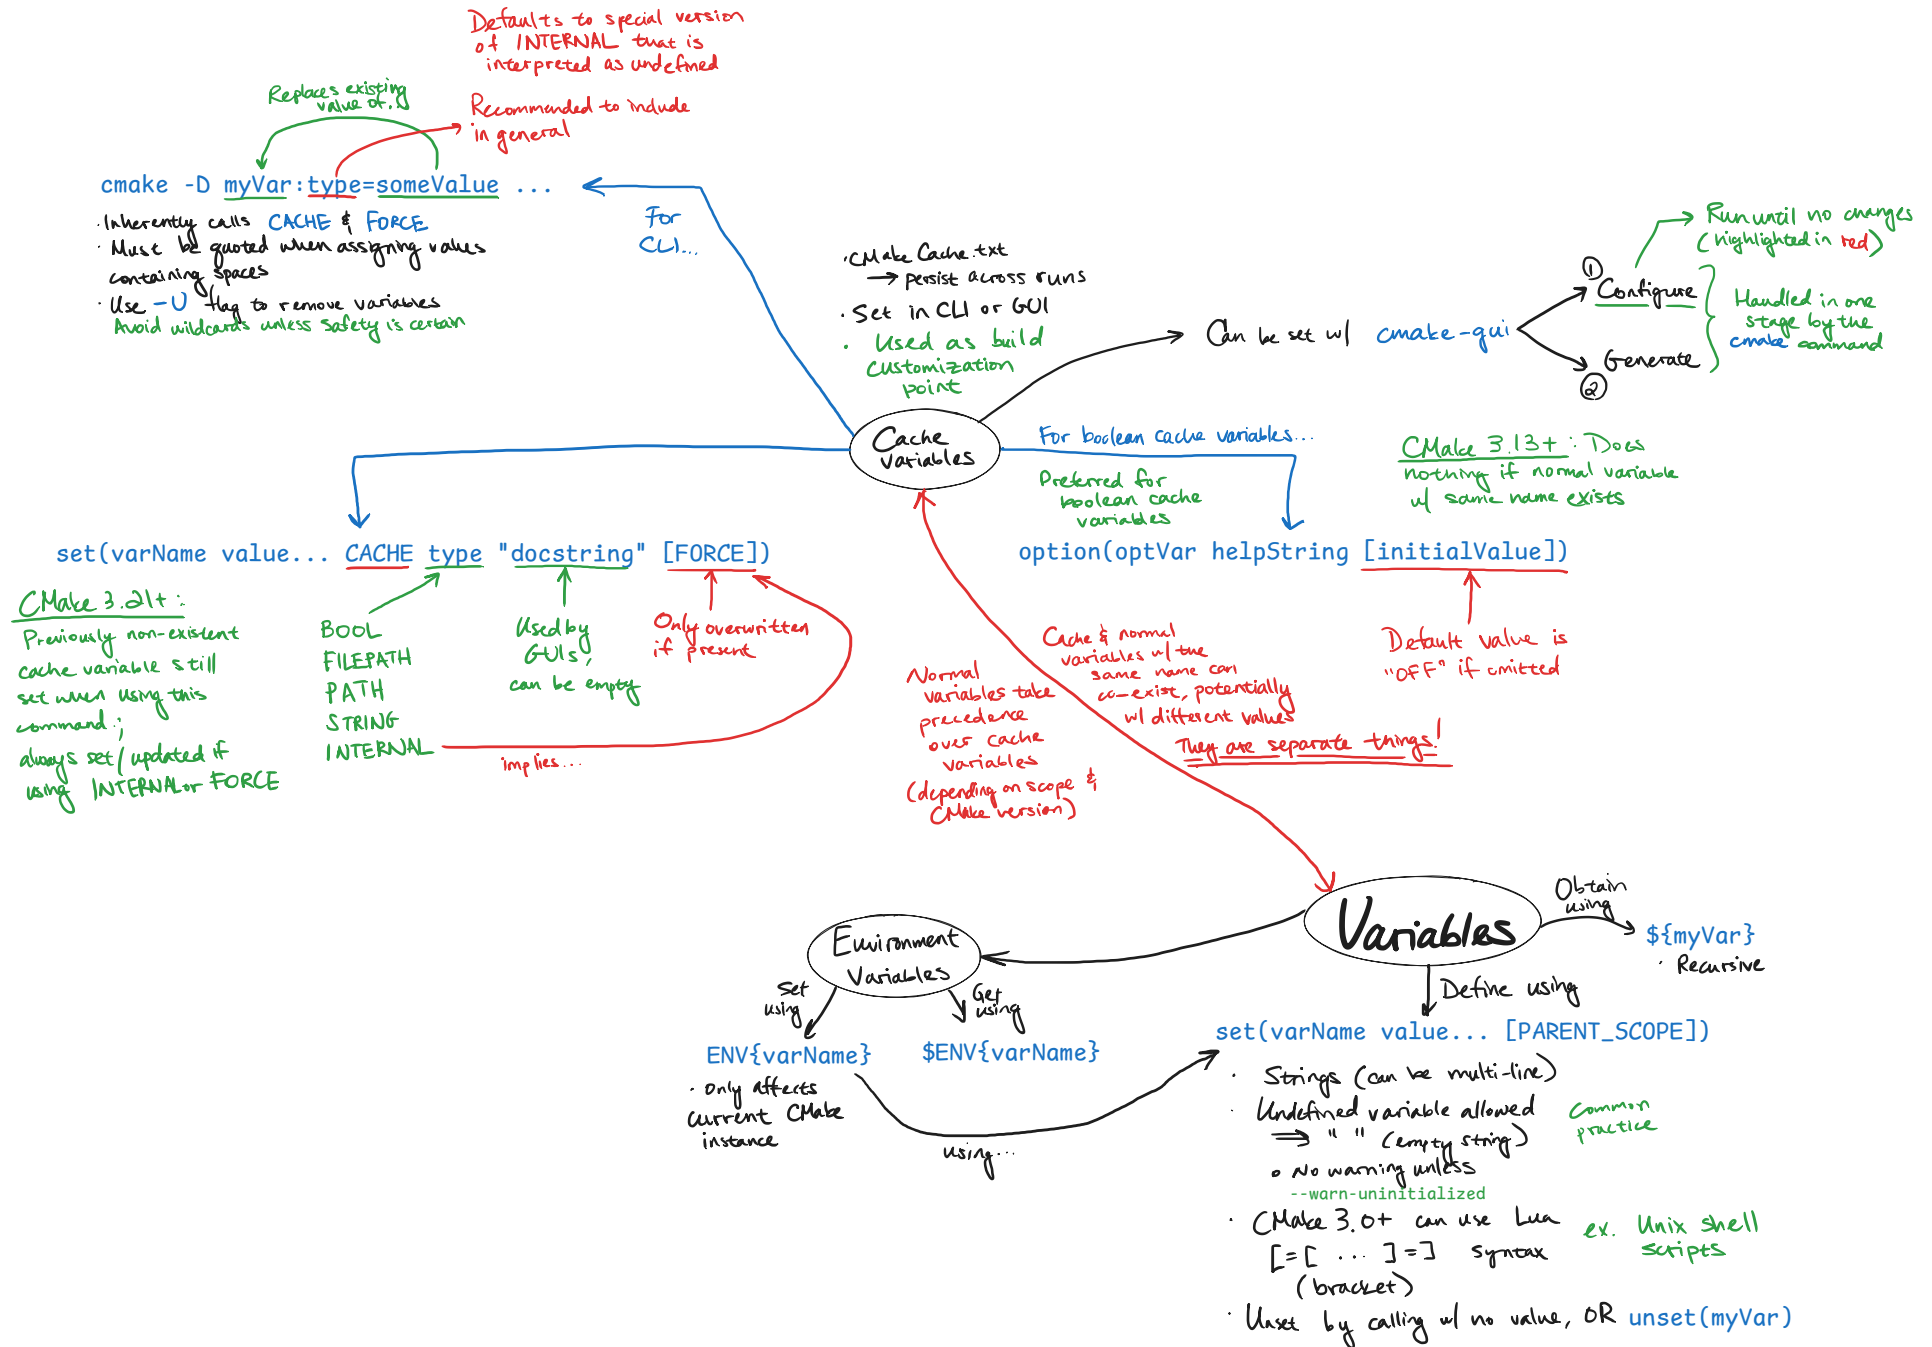 Defaults to special version
of INTERNAL that is
interpreted as undefined
Recommended to include
in general
Replaces existing
value of...
cmake -D myVar:type=someValue ...
· Inherently calls CACHE & FORCE
· Must be quoted when assigning values
containing spaces
· Use -U flag to remove variables
Avoid wildcards unless safety is certain
For
CLI...
· CMake Cache.txt
→ persist across runs
· Set in CLI or GUI
· Used as build
customization
point
Can be set w/ cmake-gui
① Configure
② Generate
Run until no changes
(highlighted in red)
Handled in one
stage by the
cmake command
Cache
Variables
For boolean cache variables...
Preferred for
boolean cache
variables
CMake 3.13+ : Does
nothing if normal variable
w/ same name exists
set(varName value... CACHE type "docstring" [FORCE])
option(optVar helpString [initialValue])
CMake 3.21+ :
Previously non-existent
cache variable still
set when using this
command;
always set/updated if
using INTERNAL or FORCE
BOOL
FILEPATH
PATH
STRING
INTERNAL
Used by
GUIs,
can be empty
Only overwritten
if present
implies...
Default value is
"OFF" if omitted
Normal
variables take
precedence
over cache
variables
(depending on scope &
CMake version)
Cache & normal
variables w/ the
same name can
co-exist, potentially
w/ different values
They are separate things!
Variables
Obtain
using
${myVar}
· Recursive
Define using
Environment
Variables
Set
using
Get
using
ENV{varName}
$ENV{varName}
· only affects
current CMake
instance
using...
set(varName value... [PARENT_SCOPE])
· Strings (can be multi-line)
· Undefined variable allowed
⇒ " " (empty string)
Common
practice
∘ No warning unless
--warn-uninitialized
· CMake 3.0+ can use Lua
[=[ ... ]=] syntax
(bracket)
ex. Unix shell
scripts
· Unset by calling w/ no value, OR unset(myVar)